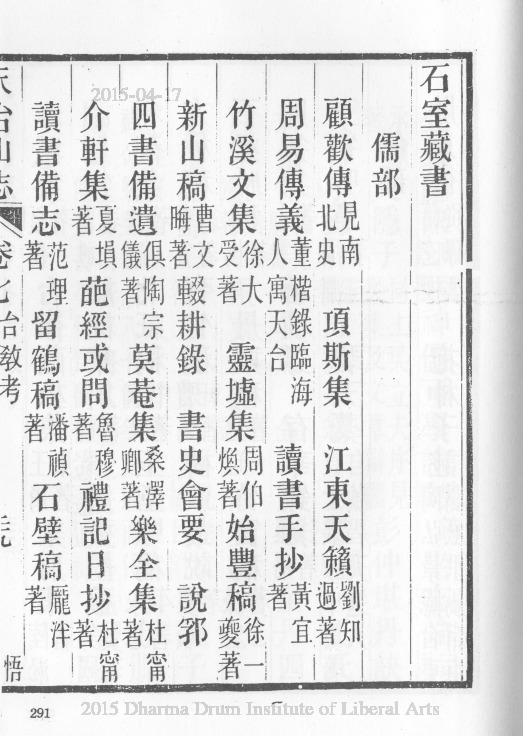 石室藏書
儒部
顧歡傳見南北史 項斯集 江東天籟劉知過著
周易傳義董楷錄臨海人寓天台 讀書手抄黃宜著
竹溪文集徐大受著 靈墟集周伯煥著 始豐稿徐一夔著
新山稿曹文晦著 輟耕錄 書史會要 說郛
四書備遺俱陶宗儀著 莫菴集桑澤卿著 樂全集杜甯著
介軒集夏塤著 葩經或問魯穆著 禮記日抄杜甯著
讀書備志范理著 留鶴稿潘禎著 石壁稿龐泮著
天台山志 卷七台教考
悟
291
2015-04-17
2015 Dharma Drum Institute of Liberal Arts